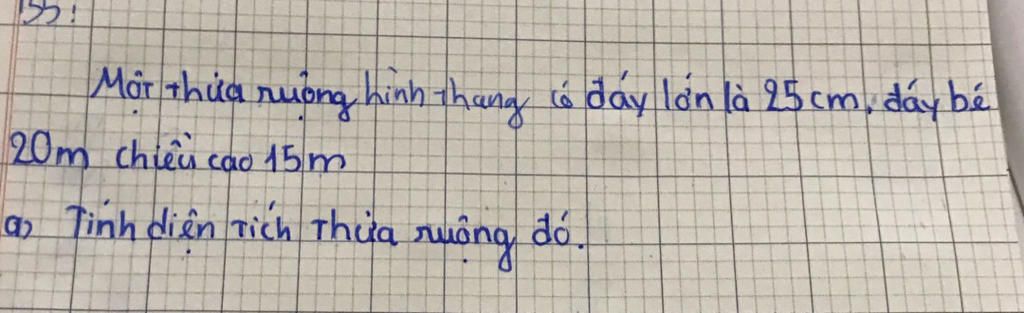 Một thửa ruộng hình thang có đáy lớn là 25 cm, đáy bé
20m chiều cao 15m
a) Tính diện tích thửa ruộng đó.